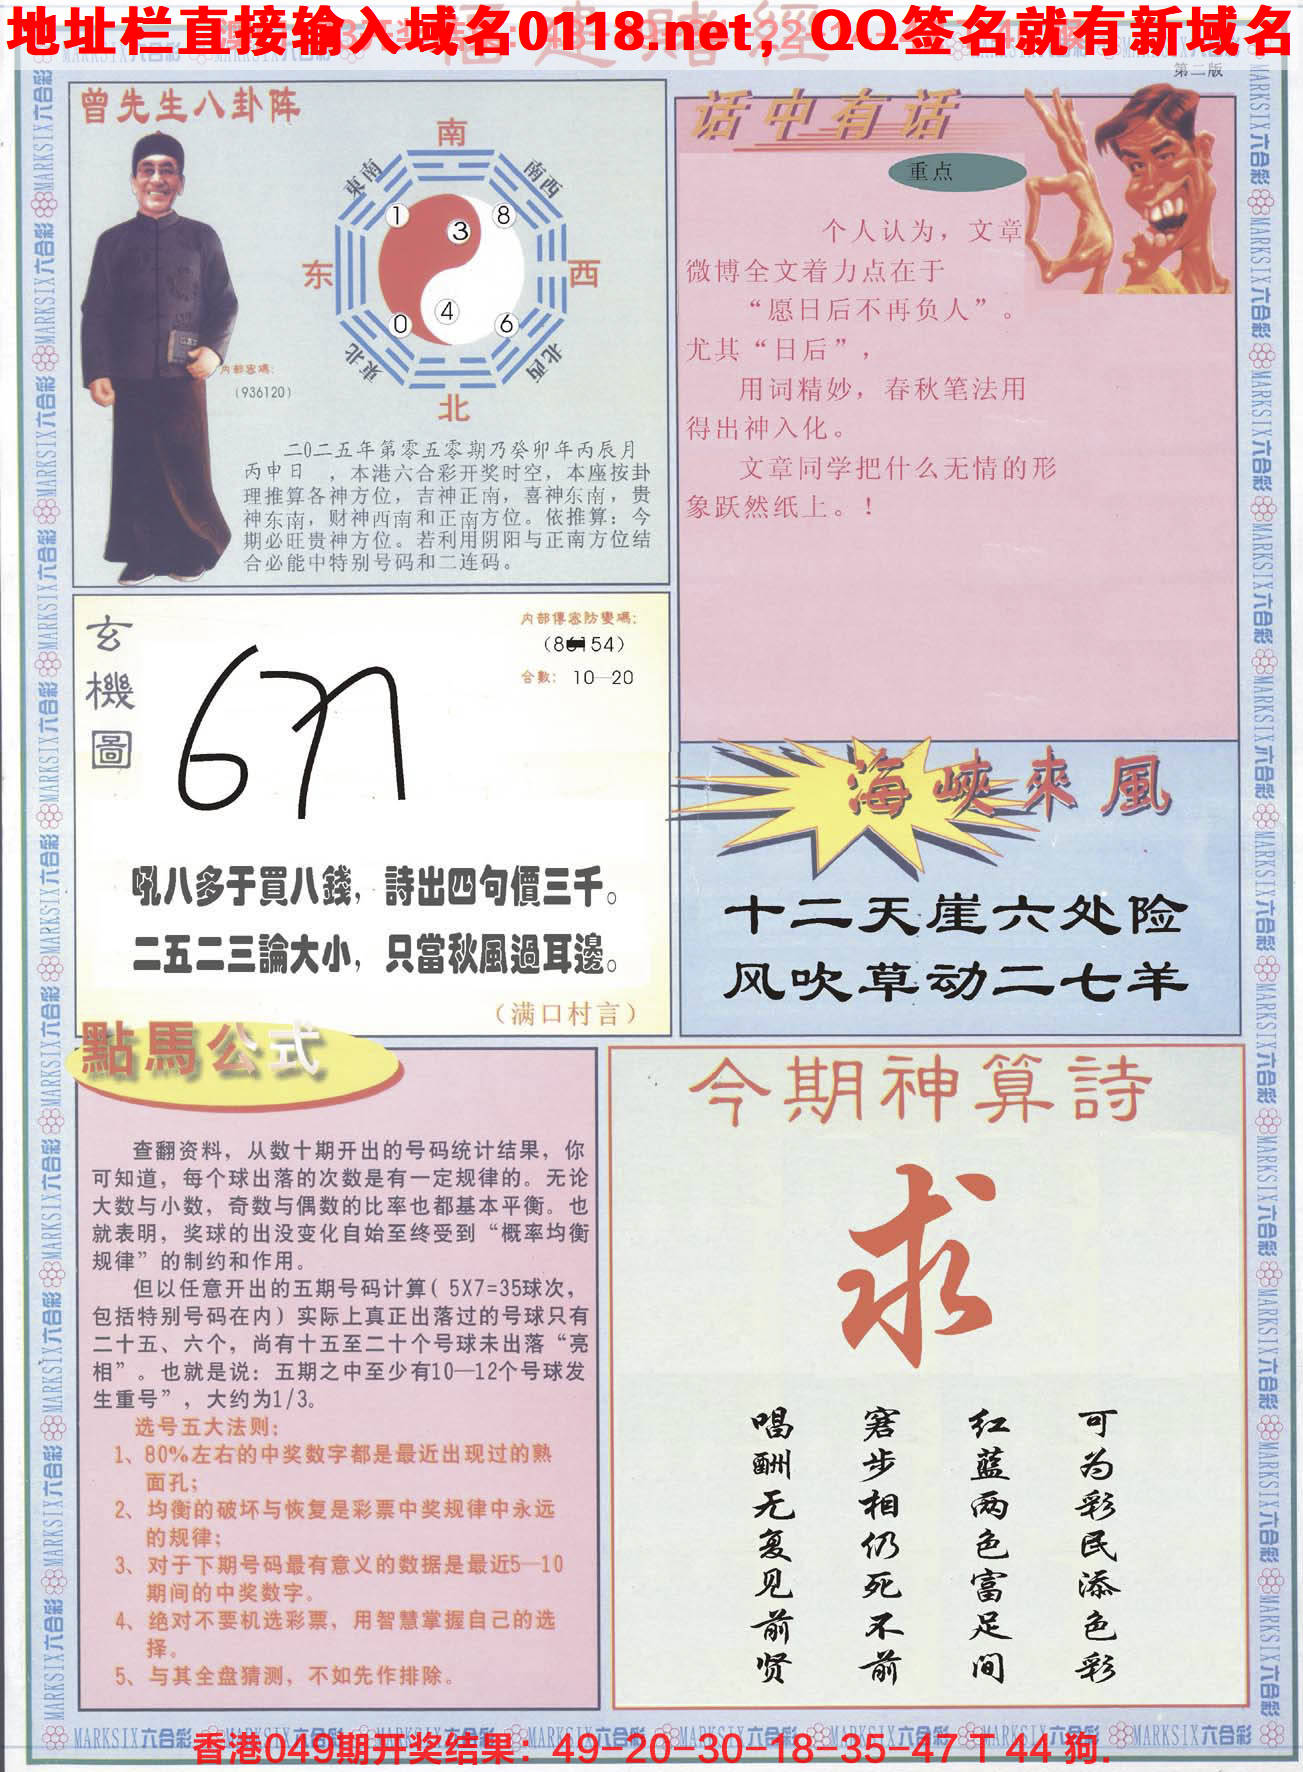 地址栏直接输入域名0118.net，QQ签名就有新域名
第二版
曾先生八卦阵
南
東南
南西
1
8
3
东
西
4
0
6
東北
北西
北
内部密碼：
（936120）
二0二五年第零五零期乃癸卯年丙辰月
丙申日　，本港六合彩开奖时空，本座按卦
理推算各神方位，吉神正南，喜神东南，贵
神东南，财神西南和正南方位。依推算：今
期必旺贵神方位。若利用阴阳与正南方位结
合必能中特别号码和二连码。
话中有话
重点
个人认为，文章
微博全文着力点在于
“愿日后不再负人”。
尤其“日后”，
用词精妙，春秋笔法用
得出神入化。
文章同学把什么无情的形
象跃然纸上。！
玄機圖
内部傳密防變碼：
合數： 10—20
吼八多于買八錢，詩出四句價三千。
二五二三論大小，只當秋風過耳邊。
（满口村言）
海峽來風
十二天崖六处险
风吹草动二七羊
點馬公式
查翻资料，从数十期开出的号码统计结果，你
可知道，每个球出落的次数是有一定规律的。无论
大数与小数，奇数与偶数的比率也都基本平衡。也
就表明，奖球的出没变化自始至终受到“概率均衡
规律”的制约和作用。
但以任意开出的五期号码计算（5X7=35球次，
包括特别号码在内）实际上真正出落过的号球只有
二十五、六个，尚有十五至二十个号球未出落“亮
相”。也就是说：五期之中至少有10—12个号球发
生重号”，大约为1/3。
选号五大法则：
1、80%左右的中奖数字都是最近出现过的熟
面孔；
2、均衡的破坏与恢复是彩票中奖规律中永远
的规律；
3、对于下期号码最有意义的数据是最近5—10
期间的中奖数字。
4、绝对不要机选彩票，用智慧掌握自己的选
择。
5、与其全盘猜测，不如先作排除。
今期神算詩
求
可为彩民添色彩
红蓝两色富足间
窘步相仍死不前
唱酬无复见前贤
MARKSIX六合彩
香港049期开奖结果：49-20-30-18-35-47 T 44 狗.